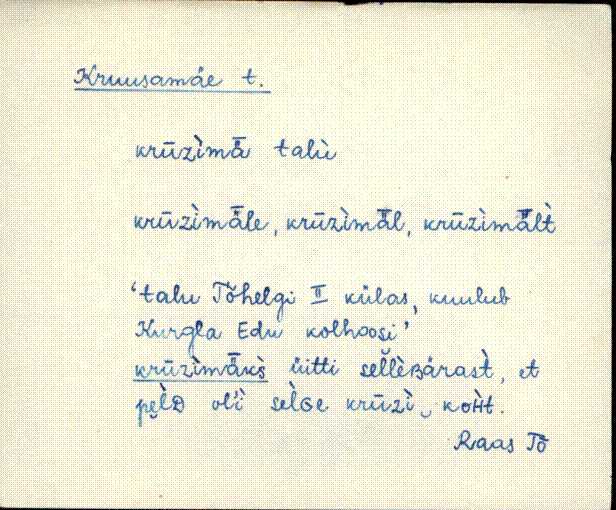 Kruusamäe t.
krūzìmǟ talù
krūzìmǟle, krūzìmǟl, krūzìmǟlt̀
‘talu Tõhelgi II külas, kuulub
Kurgla Edu kolhoosi’
krūzìmǟks̀ üitti sel̆l̀èʙärast̀, et
pe̮l̀ᴅ ol'ì sel̀ɢe krūzì‿koʜt.
Raas Tõ